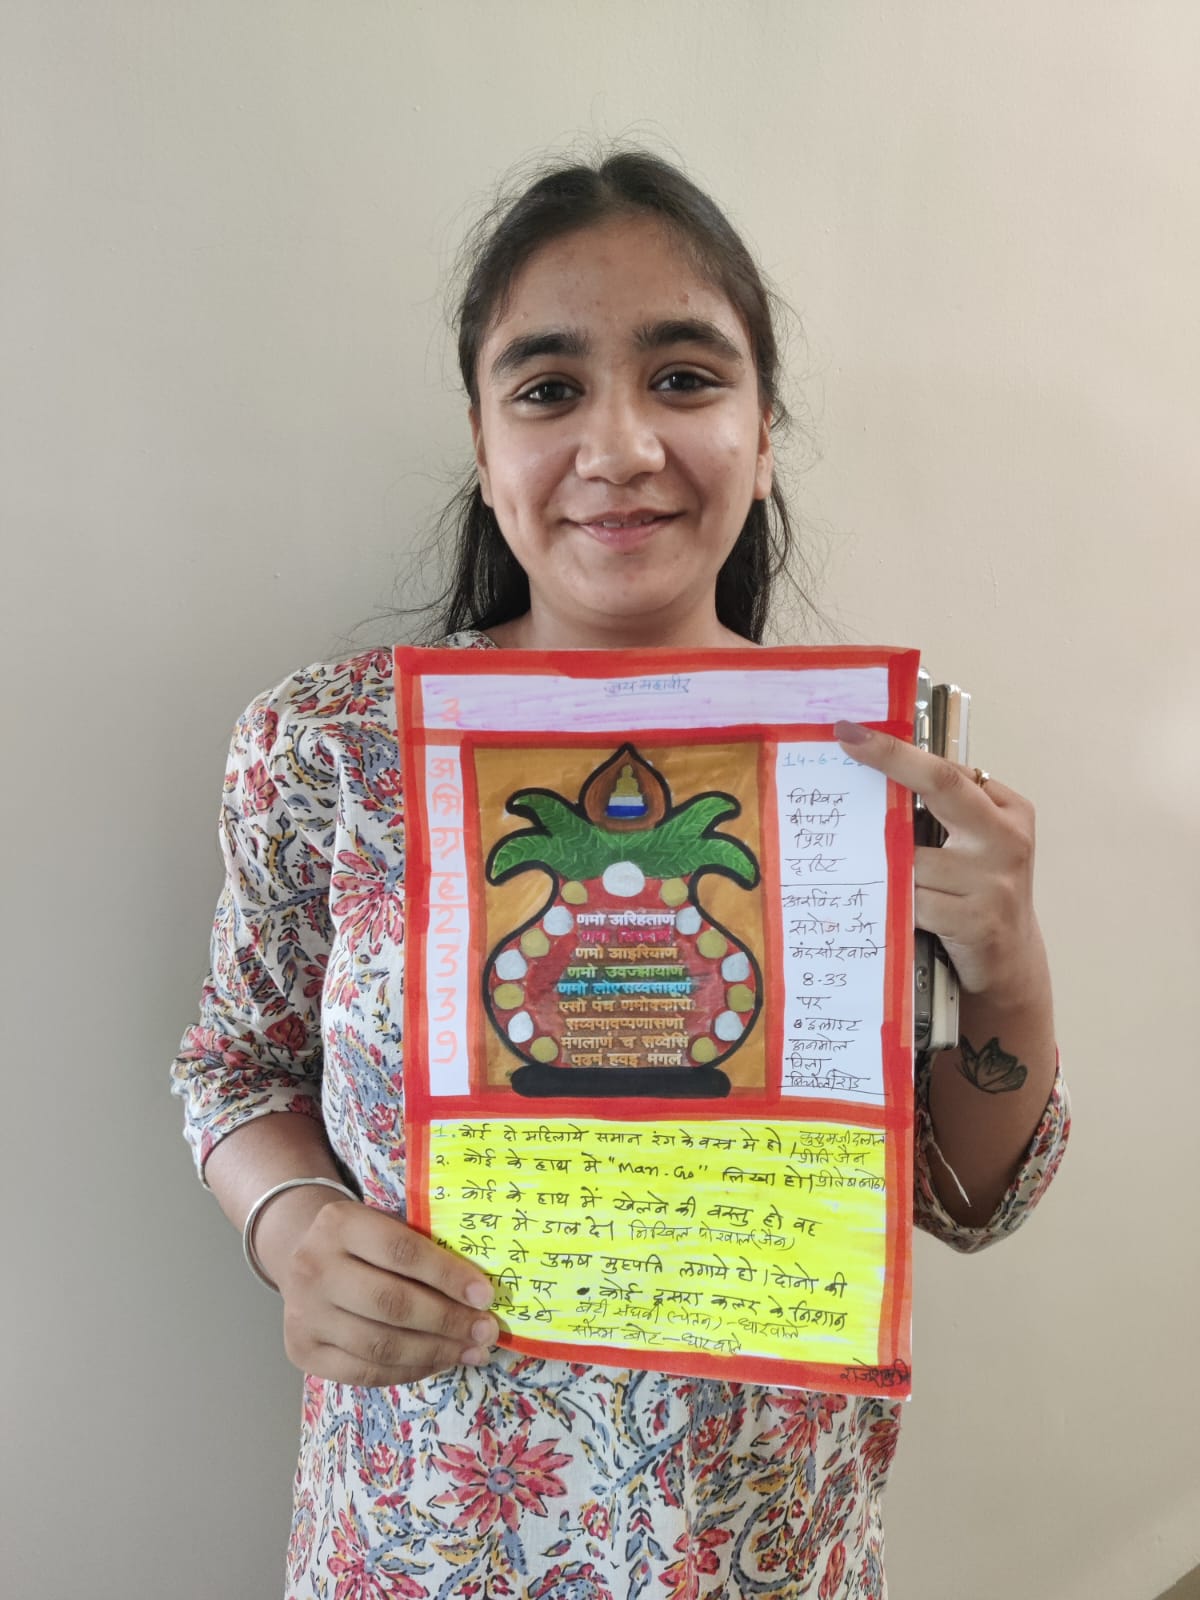 जय महावीर
अभिग्रह
2339
14-6-2
निखिल
दीपाली
प्रिशा
दृष्टि
अरविंद जी
सरोज जैन
मंदसौरवाले
8-33
पर
अनमोल
विला
णमो अरिहंताणं
णमो आइरियाणं
णमो उवज्झायाणं
णमो लोए सव्वसाहूणं
एसो पंच णमोक्कारो
सव्वपावप्पणासणो
मंगलाणं च सव्वेसिं
पढमं हवइ मंगलं
1. कोई दो महिलाये समान रंग के वस्त्र मे हो। कुसुमजी दलाल
प्रीति जैन
2. कोई के हाथ मे "Man-Go" लिखा हो।
3. कोई के हाथ में खेलने की वस्तु हो वह
दुध में डाल दे। निखिल पोरवाल (जैन)
4. कोई दो पुरूष मुहपति लगाये हो। दोनो की
त्ति पर • कोई दूसरा कलर के निशान
बंटी संघवी (चेतन) - धारवाले
सौरभ - धारवाले
राजेशमुनि